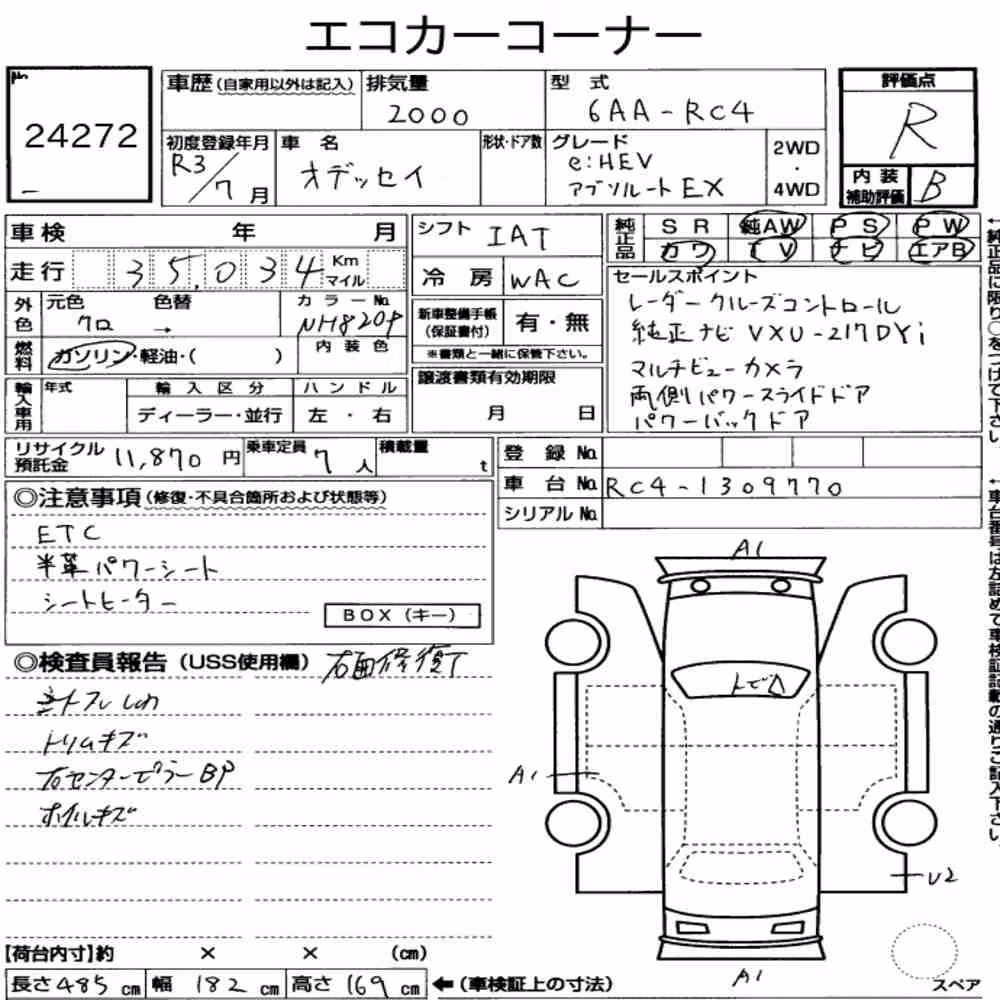 エコカーコーナー
No.
24272
車歴(自家用以外は記入)
排気量
2000
型式
6AA-RC4
評価点
R
初度登録年月
R3/7月
車名
オデッセイ
形状・ドア数
グレード
e:HEV
アブソルートEX
2WD
・
4WD
内装
補助評価
B
車検 年 月
シフト IAT
純正品
SR 純AW PS PW
カワ TV ナビ エアB
走行 35,034 Km
マイル
冷房 WAC
セールスポイント
レーダークルーズコントロール
純正ナビ VXU-217DYi
マルチビューカメラ
両側パワースライドドア
パワーバックドア
外色
元色 色替
クロ →
カラーNo.
NH820P
新車整備手帳
(保証書付)
有・無
燃料
ガソリン・軽油・( )
内装色
※書類と一緒に保管下さい。
輸入車用
年式
輸入区分
ディーラー・並行
ハンドル
左・右
譲渡書類有効期限
月 日
リサイクル
預託金
11,870円
乗車定員
7人
積載量
t
登録No.
車台No. RC4-1309770
シリアルNo.
←純正品に限り○をつけて下さい。
←車台番号は左詰めで車検証記載の通りご記入下さい。
◎注意事項(修復・不具合箇所および状態等)
ETC
半革パワーシート
シートヒーター
BOX(キー)
◎検査員報告(USS使用欄) 右面修復了
トリムキズ
右センターピラーBP
ホイルキズ
A1
A1
U2
A1
スペア
【荷台内寸】約 × × (cm)
長さ485cm 幅182cm 高さ169cm ←(車検証上の寸法)